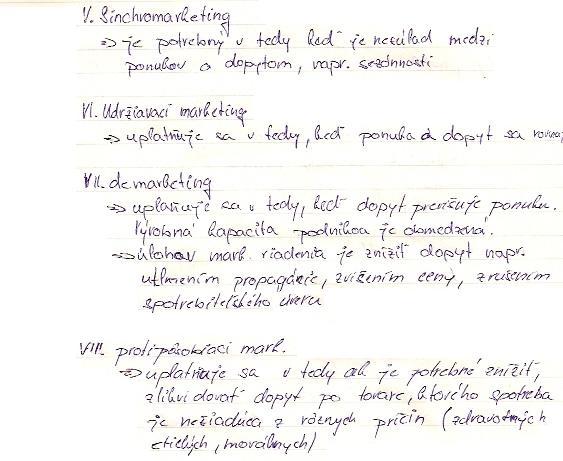 V. Sinchromarketing
⇒ je potrebný v tedy keď je nesúlad medzi
ponukov a dopytom, napr. sezónnosti
VI. Udržiavací marketing
⇒ uplatňuje sa v tedy, keď ponuka a dopyt sa rovnaj
VII. demarketing
⇒ uplatňuje sa v tedy, keď dopyt previšuje ponuku.
Výrobná kapacita podnikoa je obmedzená.
⇒ úlohov mark. riadenia je znížiť dopyt napr.
utlmením propagácie, zvíšením ceny, zrušením
spotrebiteľského úveru
VIII. protipôsobiaci mark.
⇒ uplatňuje sa v tedy ak je potrebné znížiť,
zlikvidovať dopyt po tovare, ktorého spotreba
je nežiadúca z rôznych príčin (zdravotných
etických, morálnych)